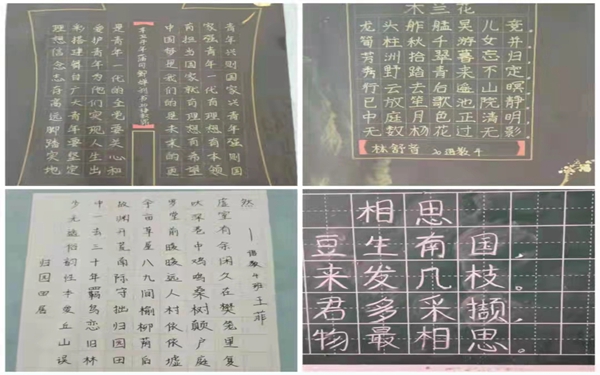 青年兴则国家兴青年强则国
家强青年一代有理想有本领
有担当国家就有理想有希望
中国梦是我们的是未来的更
是青年一代的全党要关心和
爱护青年为他们实现人生出
彩搭建舞台广大青年要坚定
理想信念志存高远脚踏实地
木兰花
龙头舴艋吴儿竞
筍柱秋千游女并
芳洲拾翠暮忘归
秀野踏青来不定
行云去后遥山暝
已放笙歌池院静
中庭月色正清明
无数杨花过无影
林舒 语数4
归园田居
少无适俗韵性本爱丘山误
中一去三十年羁鸟恋旧林
故渊开荒南际守拙归园田
余亩草屋八九间榆柳荫后
罗堂前暧暧远人村依依墟
吠深巷中鸡鸣桑树颠户庭
虚室有余闲久在樊笼里复
然
语数4班 王菲
相思
豆生南国，
来发几枝。
君多采撷，
物最相思。